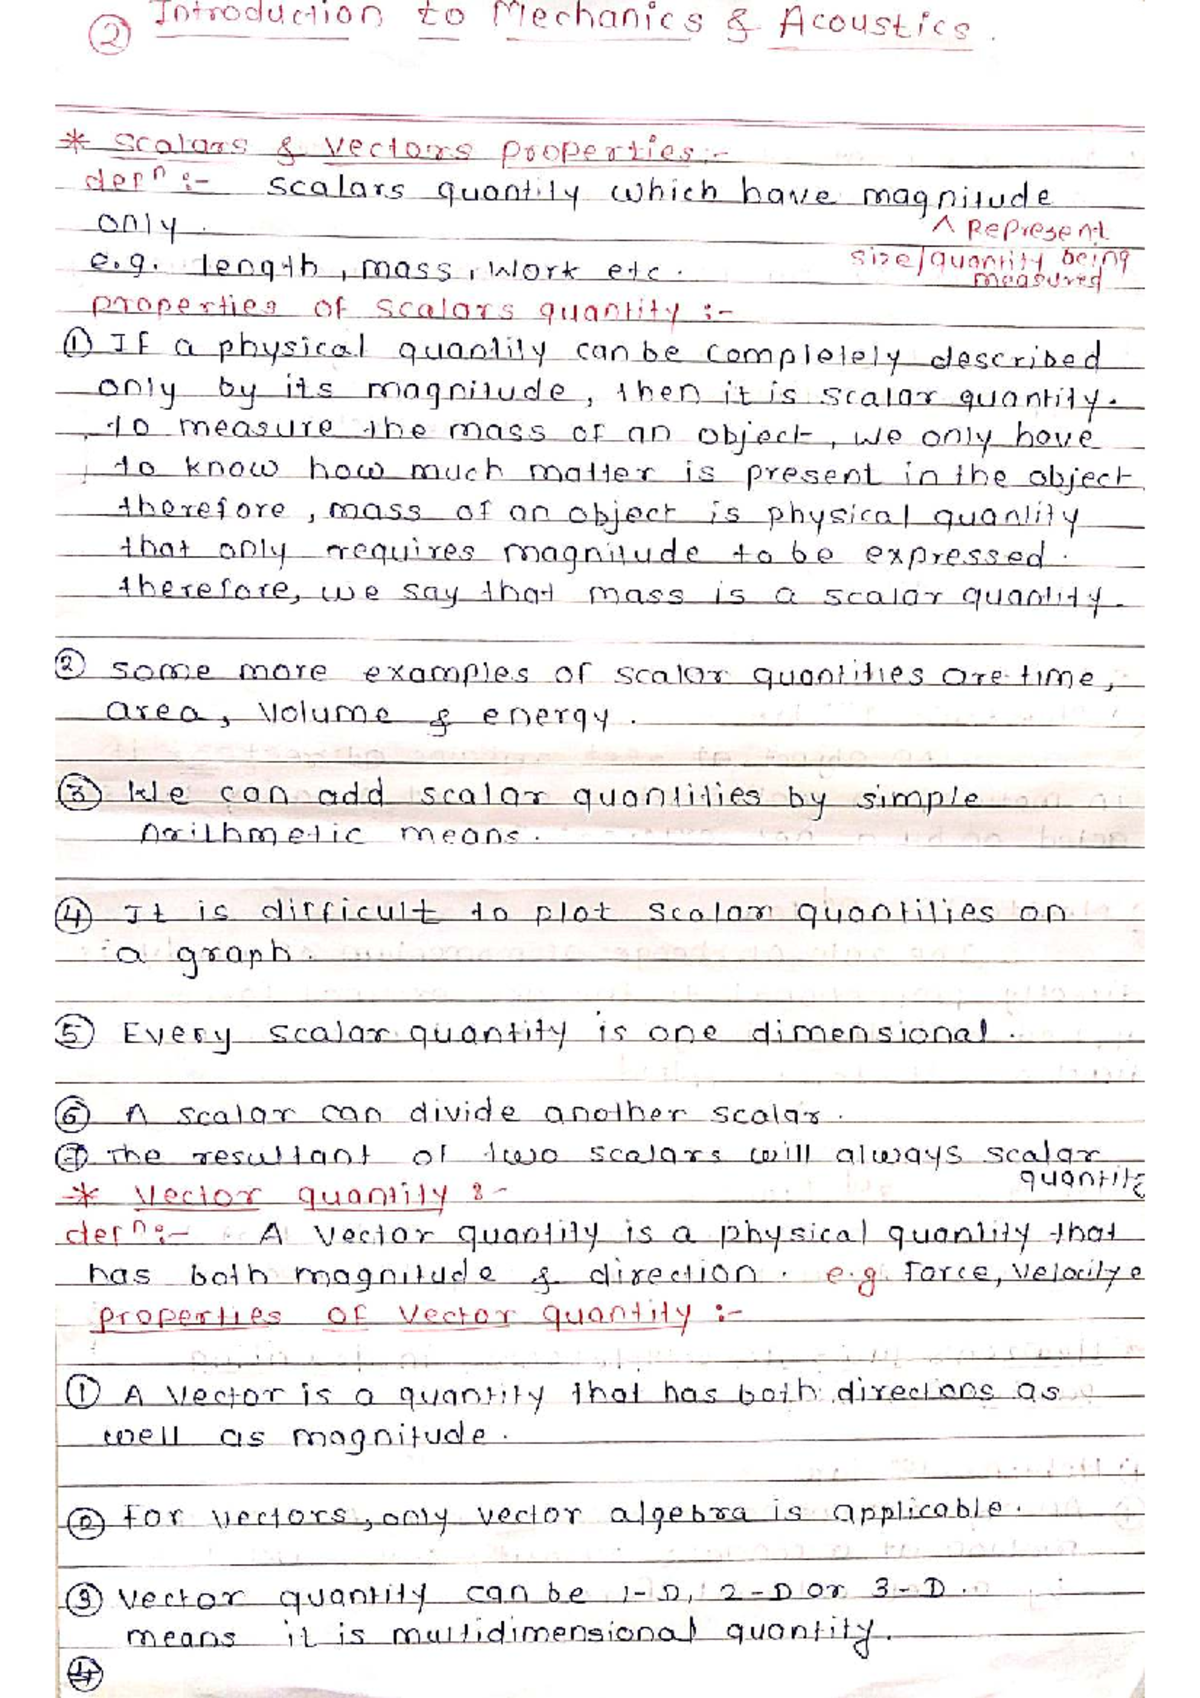 ② Introduction to Mechanics & Acoustics.
* Scalars & Vectors properties:-
defⁿ :- scalars quantity which have magnitude
only.
^ Represent
size/quantity being
measured
e.g. length, mass, work etc.
properties of scalars quantity :-
① If a physical quantity can be completely described
only by its magnitude, then it is scalar quantity.
to measure the mass of an object, we only have
to know how much matter is present in the object
therefore, mass of an object is physical quantity
that only requires magnitude to be expressed.
therefore, we say that mass is a scalar quantity.
② some more examples of scalar quantities are time,
area, volume & energy.
③ We can add scalar quantities by simple
Arithmetic means.
④ It is difficult to plot scalar quantities on
a graph.
⑤ Every scalar quantity is one dimensional.
⑥ A scalar can divide another scalar.
⑦ The resultant of two scalars will always scalar
quantity
* Vector quantity :-
defⁿ:- A vector quantity is a physical quantity that
has both magnitude & direction. e.g. force, velocity e
properties of vector quantity :-
① A vector is a quantity that has both directions as
well as magnitude.
② For vectors, only vector algebra is applicable.
③ Vector quantity can be 1-D, 2-D or 3-D.
means it is multidimensional quantity.
④